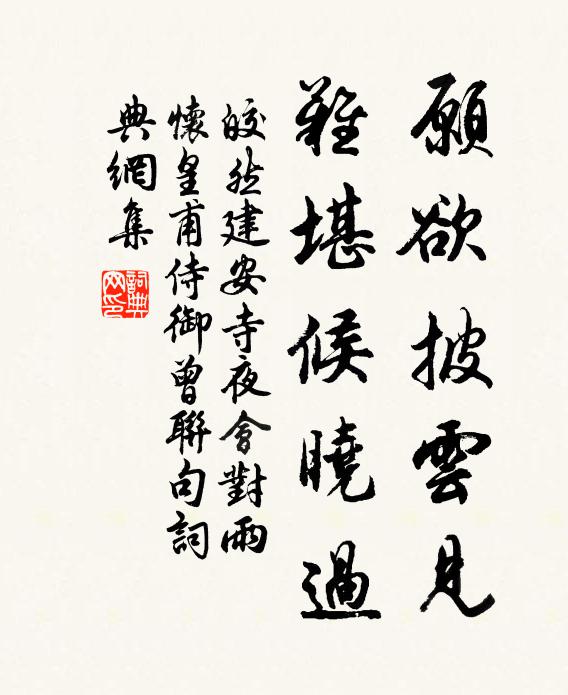 願欲披雲見
難堪候曉過
皎然建安寺夜會對雨
懷皇甫侍御曾聯句詞
典網集
詞典
网印